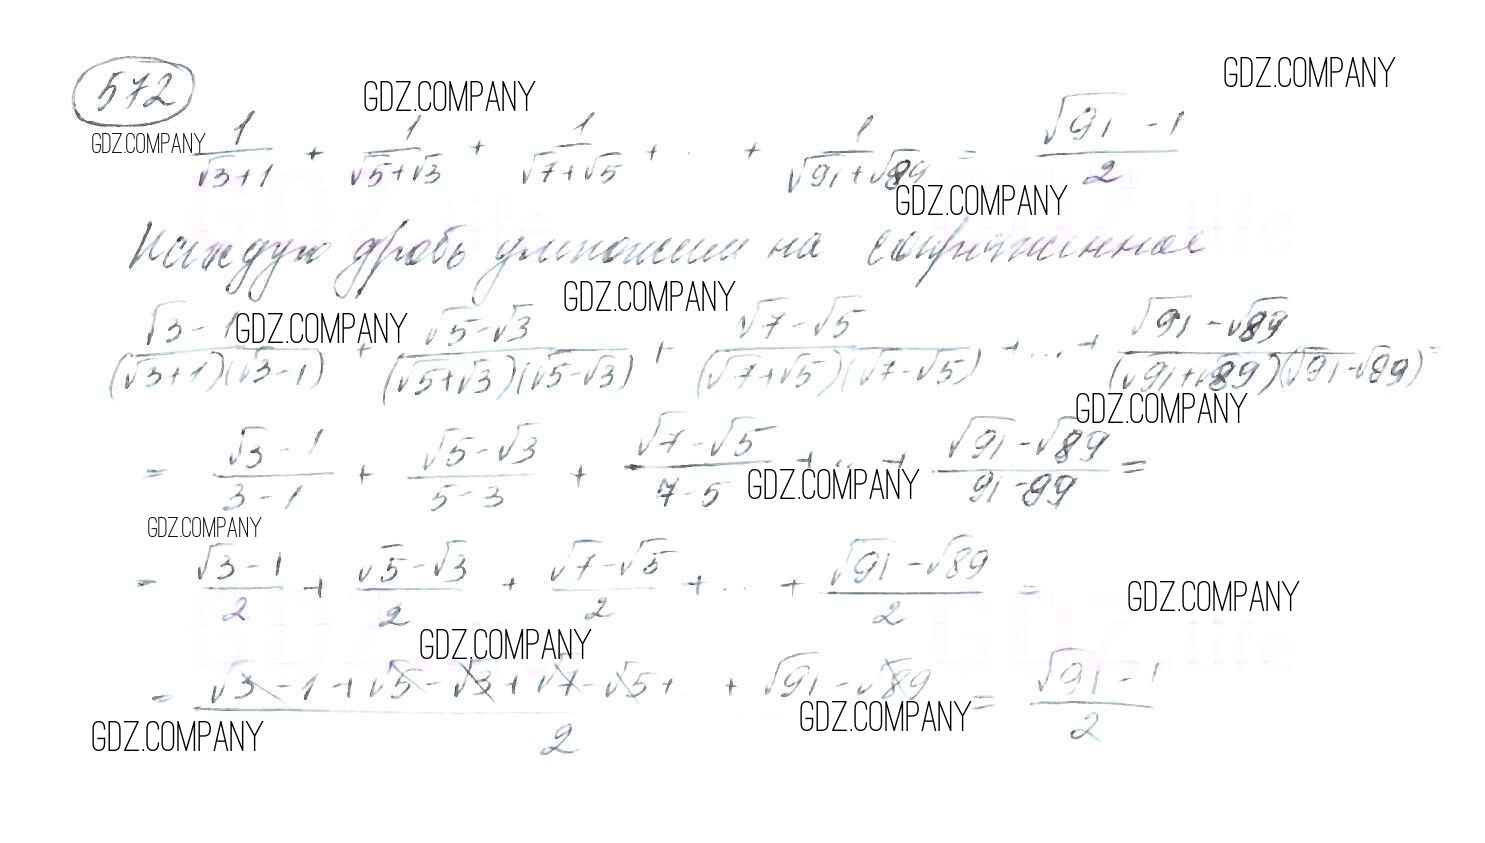 572
GDZ.COMPANY GDZ.COMPANY
GDZ.COMPANY
1/(√3+1) + 1/(√5+√3) + 1/(√7+√5) + ... + 1/(√91+√89) = (√91 - 1)/2
GDZ.COMPANY
Каждую дробь умножим на сопряженное
GDZ.COMPANY
GDZ.COMPANY
(√3 - 1)/((√3+1)(√3-1)) + (√5-√3)/((√5+√3)(√5-√3)) + (√7-√5)/((√7+√5)(√7-√5)) + ... + (√91-√89)/((√91+√89)(√91-√89)) =
GDZ.COMPANY
= (√3 - 1)/(3 - 1) + (√5-√3)/(5 - 3) + (√7-√5)/(7 - 5) + ... + (√91-√89)/(91-89) =
GDZ.COMPANY
GDZ.COMPANY
= (√3 - 1)/2 + (√5-√3)/2 + (√7-√5)/2 + ... + (√91-√89)/2 =
GDZ.COMPANY
GDZ.COMPANY
= (√3 - 1 + √5 - √3 + √7 - √5 + ... + √91 - √89)/2 = (√91 - 1)/2
GDZ.COMPANY
GDZ.COMPANY